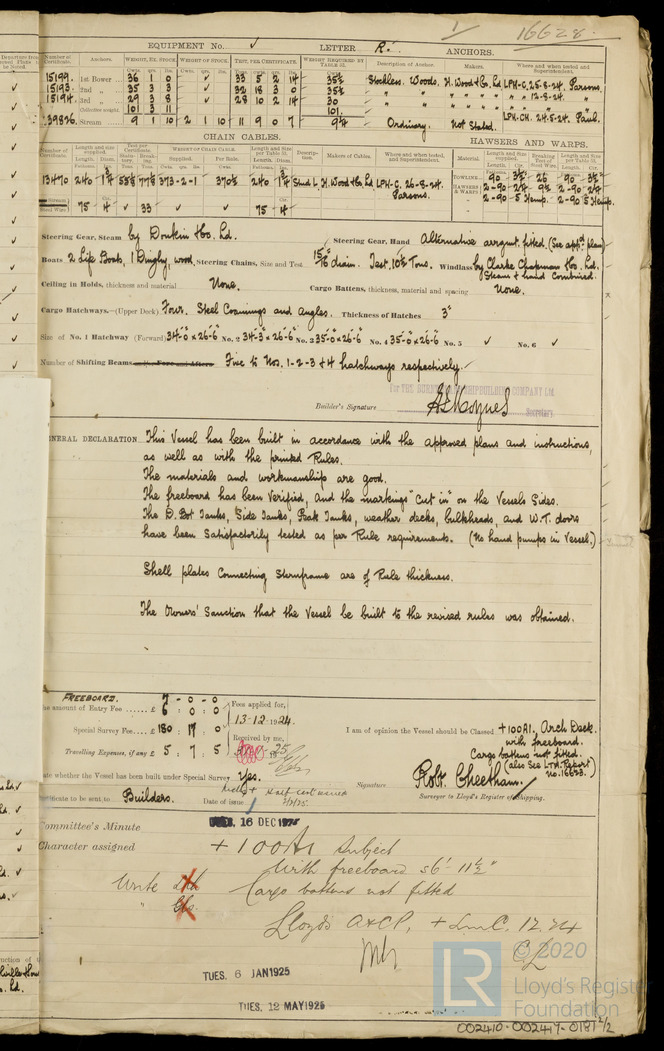 1/ 16628.
EQUIPMENT No. ✓ LETTER R. ANCHORS.
Number of Certificate. Anchors. WEIGHT, EX. STOCK. WEIGHT OF STOCK. TEST, PER CERTIFICATE. WEIGHT REQUIRED BY TABLE 31. Description of Anchor. Makers. Where and when tested and Superintendent.
15199. 1st Bower 36 1 0 ✓ 33 5 2 14 35½ Stockless. Woods. H. Wood & Co. Ld LPH-C. 25-8-24. Parsons.
15193. 2nd " 35 3 3 ✓ 32 18 3 0 35½ " " " " " " "
15194. 3rd " 29 3 8 ✓ 28 10 2 14 30 " " " " " 12-8-24. "
Collective weight 101 3 11 101.
39826. Stream 9 1 10 2 1 10 11 9 0 7 9¼ Ordinary. Not Stated. LPH-CH. 24-5-24. Paul.
CHAIN CABLES. HAWSERS AND WARPS.
Number of Certificate. Length and size supplied. Test per Certificate. WEIGHT OF CHAIN CABLE. Length and size per Table 31. Description. Makers of Cables. Where and when tested, and Superintendent. Material. Length and Size supplied. Breaking Test of Steel Wire. Length and size per Table 31.
13470 240 1¾ 55⅛ 77⅛ 373-2-1 370½ 240 1¾ Stud L. H. Wood & Co. Ld LPH-C. 26-8-24. Parsons.
TOWLINE 90 3½ 26 90 3½
HAWSERS & WARPS 2-90 2¼ 9½ 2-90 2¼
2-90 5 Hemp. 2-90 5 Hemp.
Stream Steel Wire 75 4 ✓ 33 75 4
Steering Gear, Steam by Donkin & Co. Ld. Steering Gear, Hand Alternative arrgmt. fitted. (See appd plan)
Boats 2 Life Boats, 1 Dinghy, wood. Steering Chains, Size and Test 15/16 chain. Test. 10½ Tons. Windlass by Clarke Chapman & Co. Ld. Steam & hand Combined.
Ceiling in Holds, thickness and material None. Cargo Battens, thickness, material and spacing None.
Cargo Hatchways.—(Upper Deck) Four. Steel Coamings and Angles. Thickness of Hatches 3"
Size of No. 1 Hatchway (Forward) 34-0 x 26-6 No. 2 34-3 x 26-6 No. 3 35-0 x 26-6 No. 4 35-0 x 26-0 No. 5 ✓ No. 6 ✓
Number of Shifting Beams Five to Nos. 1-2-3 & 4 hatchways respectively.
For THE BURNTISLAND SHIPBUILDING COMPANY Ltd.
Builder's Signature Secretary.
GENERAL DECLARATION This Vessel has been built in accordance with the approved plans and instructions,
as well as with the printed Rules.
The materials and workmanship are good.
The freeboard has been Verified, and the markings "Cut in" on the Vessels Sides.
The D. Bot Tanks, Side Tanks, Peak Tanks, weather decks, bulkheads, and W.T. doors
have been Satisfactorily tested as per Rule requirements. (No hand pumps in Vessel.)
Shell plates Connecting Sternframe are of Rule thickness.
The Owners' Sanction that the Vessel be built to the revised rules was obtained.
FREEBOARD. 7 - 0 - 0
The amount of Entry Fee ...... £ 6 : 0 : 0 Fees applied for,
13-12-1924.
Special Survey Fee.... £ 180 : 17 : 0 Received by me,
Travelling Expenses, if any £ 5 : 7 : 5
I am of opinion the Vessel should be Classed +100A1. Arch Deck.
with freeboard.
Cargo battens not fitted.
(also See Lth. Report
No. 16623.)
State whether the Vessel has been built under Special Survey Yes.
Signature Robt. Cheetham.
Surveyor to Lloyd's Register of Shipping.
Certificate to be sent to Builders. Date of issue
Committee's Minute TUES. 16 DEC 1924
Character assigned +100A1 Subject
With freeboard s6'-11½"
Write Cargo battens not fitted
Lloyds A&CP. + LMC. 12.24
TUES. 6 JAN 1925
TUES. 12 MAY 1925
LR © 2020
Lloyd's Register
Foundation
002410-002417-0181 2/2